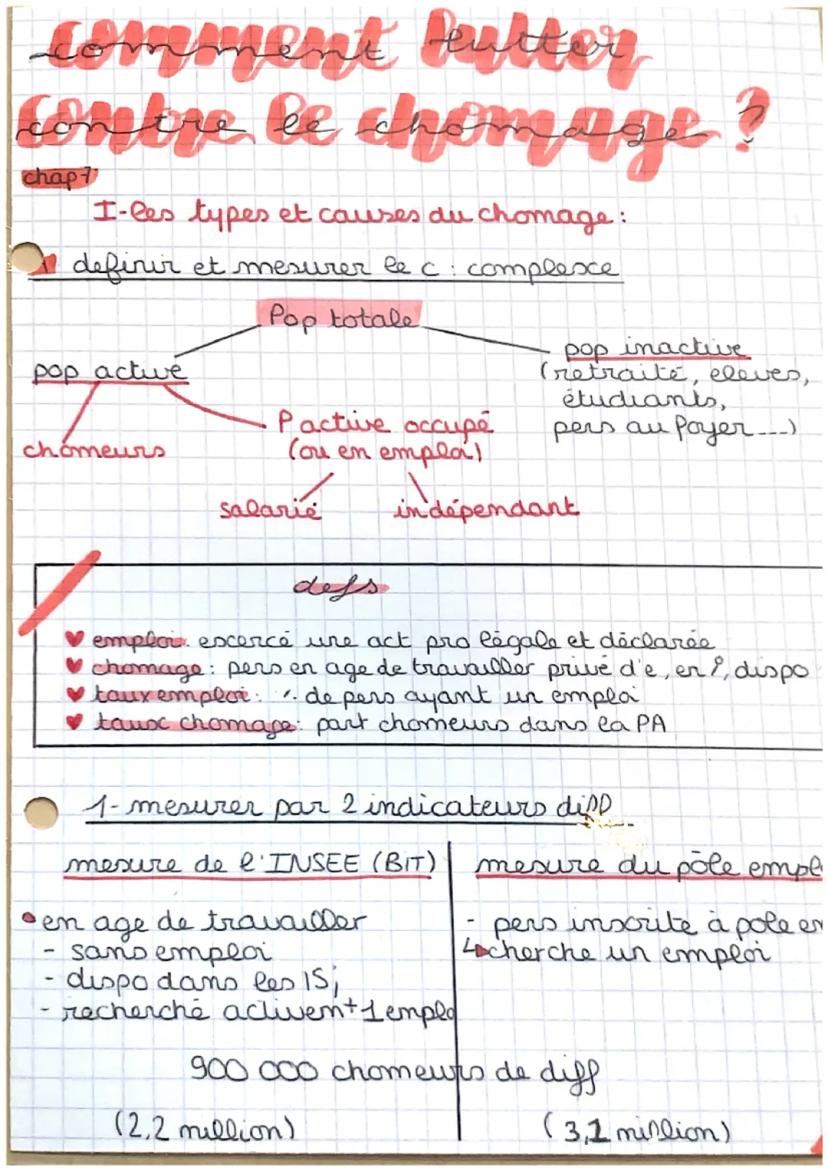 comment lutter
contre le chomage ?
chap 7
I - les types et causes du chomage :
definir et mesurer le c : complexe
Pop totale
pop active
pop inactive
(retraité, eleves,
étudiants,
pers au foyer ...)
chômeurs
P active occupé
(ou en emploi)
salarié
indépendant
defs
♥ emploi : exercé une act pro légale et déclarée
♥ chomage : pers en age de travailler privé d'e, en
, dispo
♥ taux emploi : % de pers ayant un emploi
♥ taux chomage : part chomeurs dans la PA
1 - mesurer par 2 indicateurs diff
mesure de l'INSEE (BIT)
• en age de travailler
- sans emploi
- dispo dans les 15j
- recherché activem+ 1 emplo
mesure du pôle empl
- pers inscrite à pole em
↳ cherche un emploi
900 000 chomeurs de diff
(2,2 million)
(3,1 million)